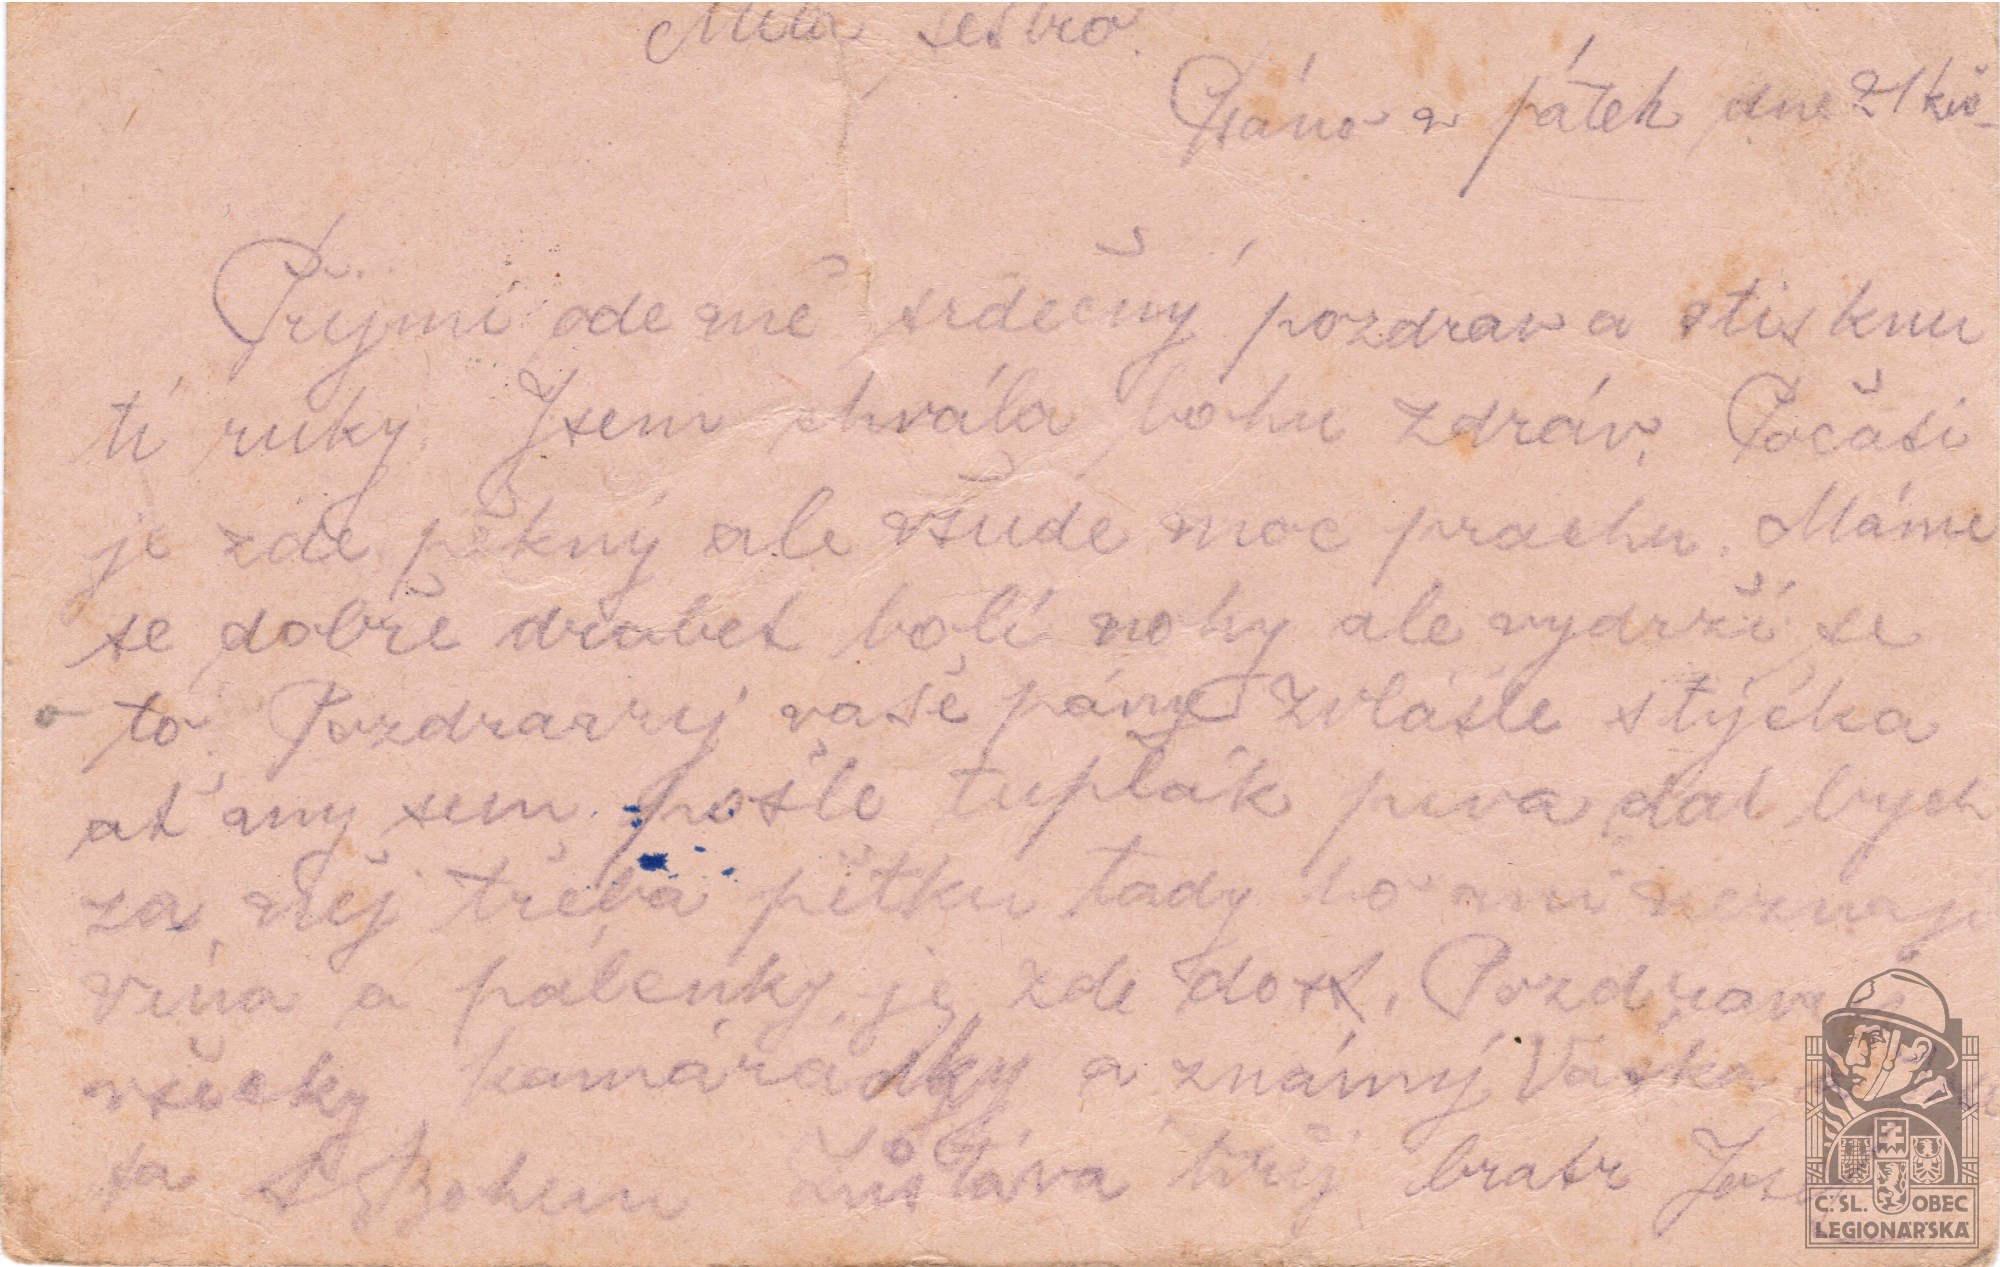 Milá sestro.
Psáno v pátek dne 21 kvě-
Přijmi ode mně srdečný pozdrav a stisknu
tí ruky. Jsem chvála bohu zdráv. Počasi
je zde pěkný ale všude moc prachu. Máme
se dobře drobet bolí nohy ale vydrží se
to. Pozdravuj vaše pány zvlášte stýčka
ať my sem pošle tuplák piva dal bych
za něj třeba pětku tady ho ani neznaj
vína a pálenky je zde dost. Pozdravuj
všecky kamarádky a známý Vaška
sa S Bohem Zůstáva tvůj bratr Josef
Č. SL. OBEC
LEGIONÁŘSKÁ